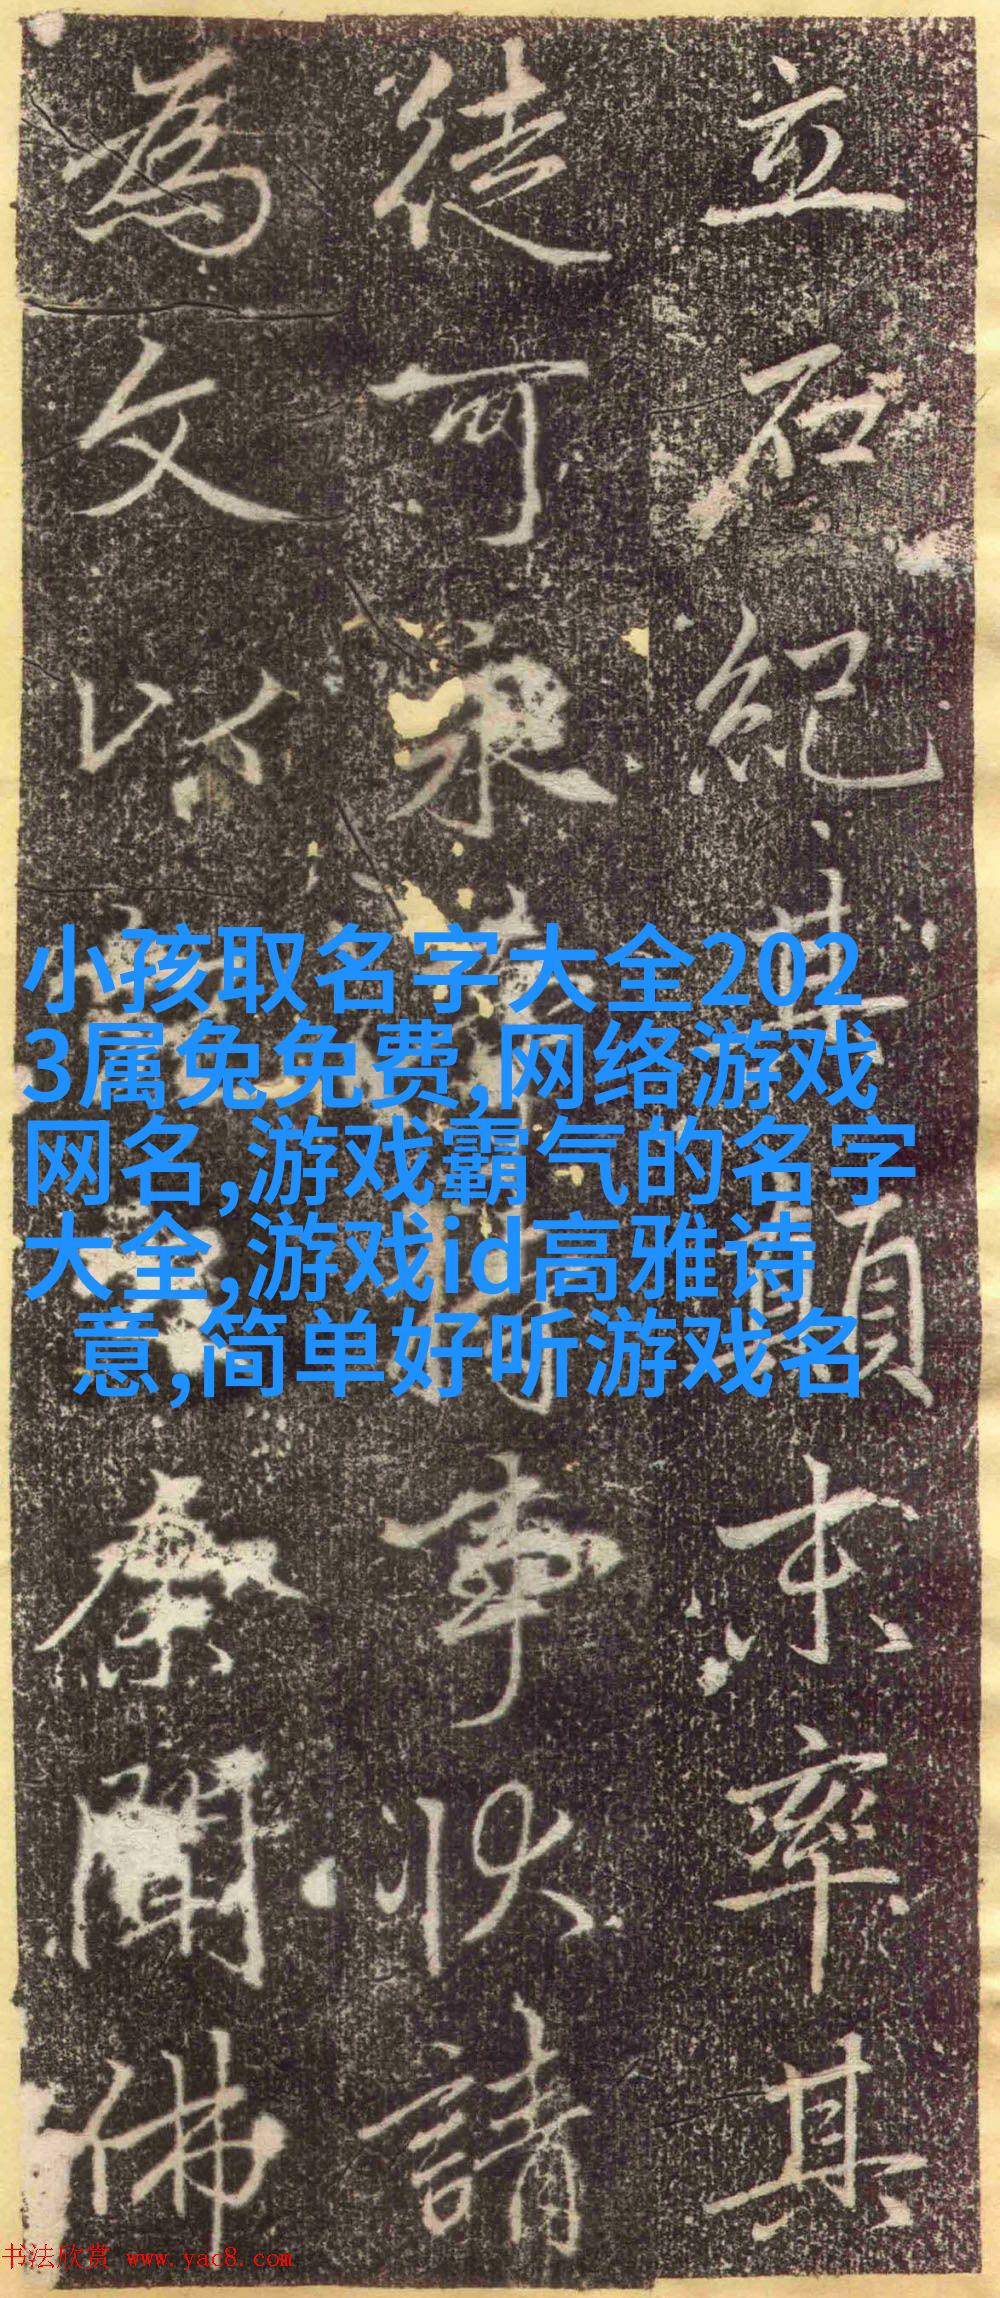 立石紀其顛末率其
徒可事狀請
為文以聞佛
小孩取名字大全202
3属兔免费,网络游戏
网名,游戏霸气的名字
大全,游戏id高雅诗
意,简单好听游戏名
书法欣赏 www.yac8.com